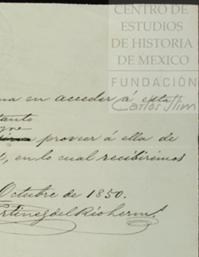 CENTRO DE
ESTUDIOS
DE HISTORIA
DE MEXICO
FUNDACIÓN
Carlos Slim
na en acceder á esta
tanto
proveer á ella de
, en lo cual recibiremos
Octubre de 1850.
rtinez del Rio herm